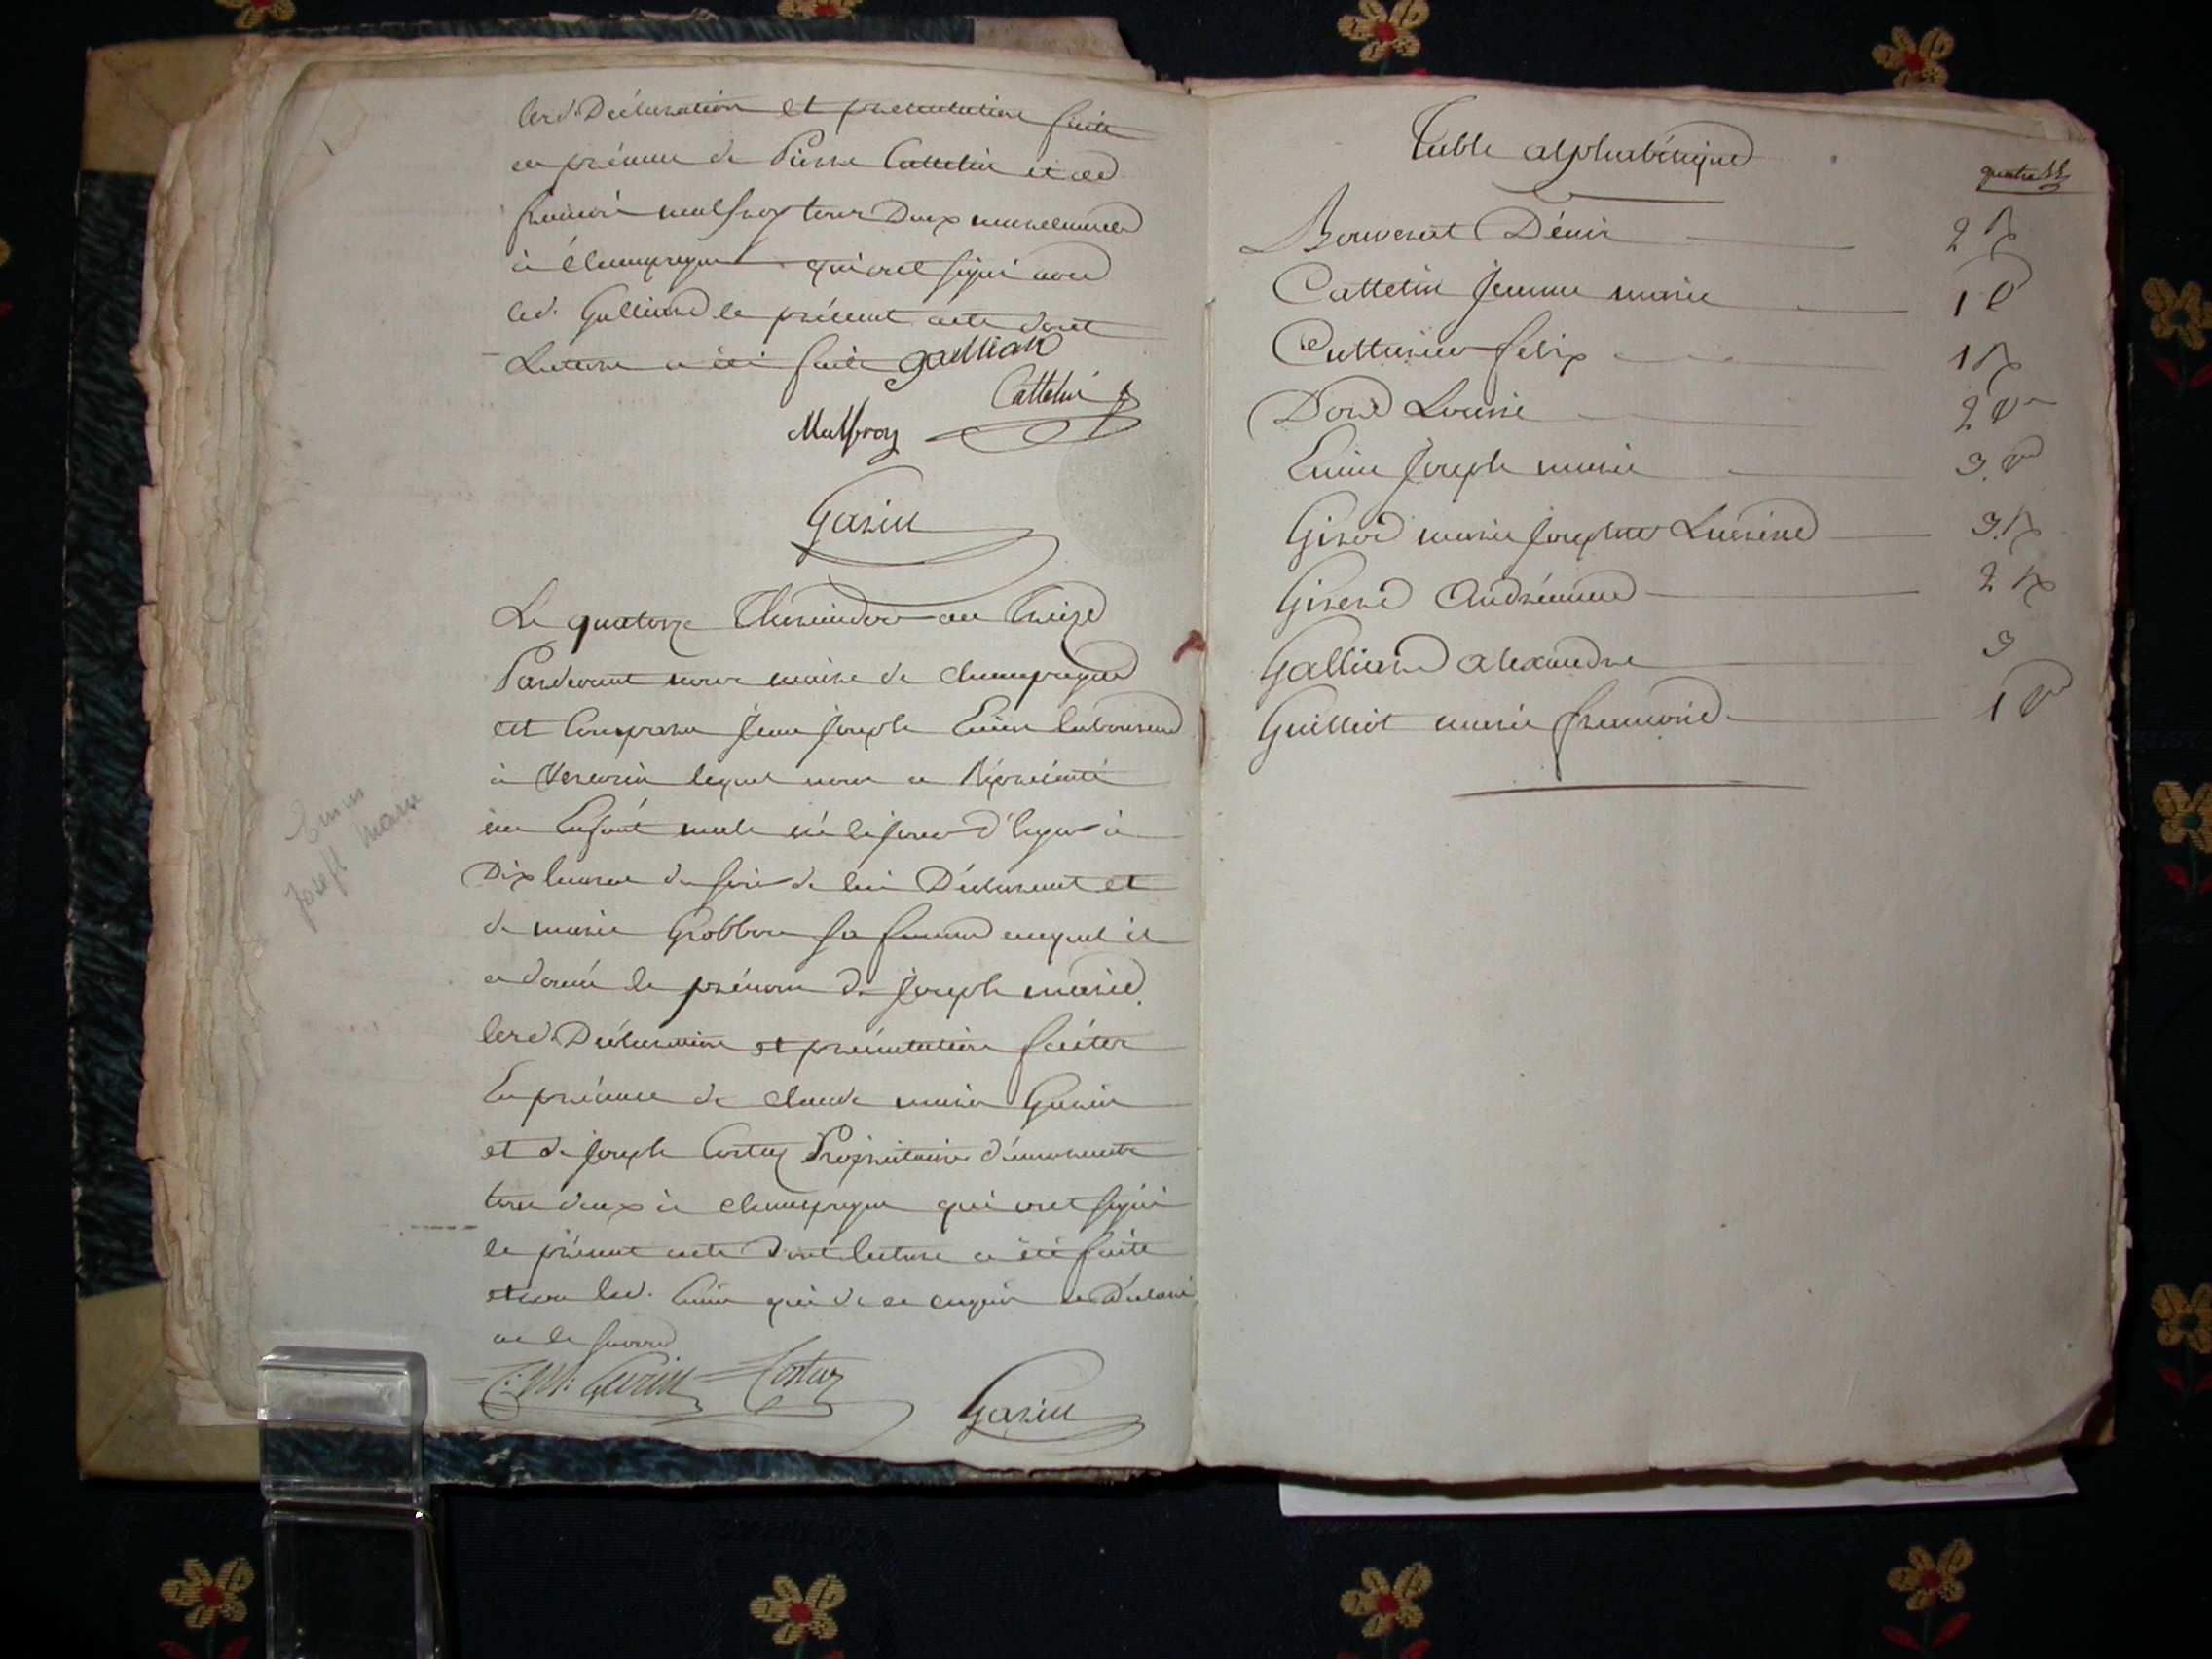 lesd. Déclaration et présentation faite
en présence de Pierre Cattelin et de
françois malfroy tous Deux
à Champagne qui ont signé avec
led. Galliard le présent acte dont
Lecture a été faite galliard
Cattelin
Malfroy
Garin
Le quatorze Thermidor an Treize
Pardevant nous maire de champagne
est Comparu Jean Joseph Enin laboureur
à lequel nous a Réprésenté
un Enfant male né le jour d'hyer à
Dix heures du soir de lui Déclarant et
de marie Grobbon sa femme auquel il
a donné le prénom de Joseph marie
lesd. Déclaration et présentation faites
En présence de claude marie Guerin
et de Joseph Costaz Propriétaires démeurants
tous deux à champagne qui ont signé
le présent acte dont lecture a été faite
et non led. Enin qui de ce enquis a Déclaré
ne le savoir
C: M: Guerin Costaz
Garin
Enin
Joseph Marie
Table alphabétique
Bouverat Dénis 2
Cattelin Jeanne marie 1
Cutturier felix 1
Doré Louise 2
Enin Joseph marie 3
Girod marie Josephte Lucrene 3
Girerd Andréanne 2
Galliard alexandre 3
Guilliot marie francoise 1